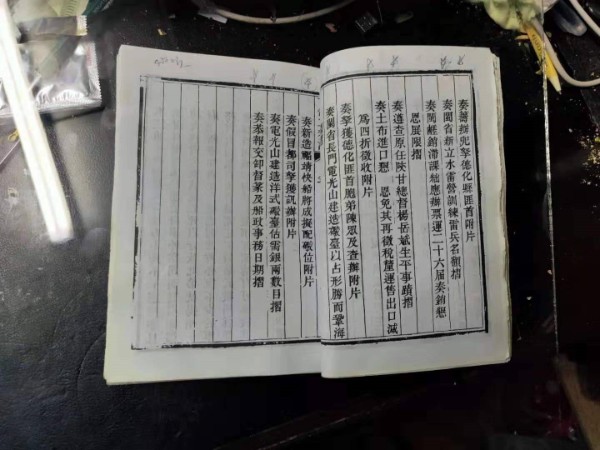 奏籌辦兜拏德化匪首附片
奏閩省新立水雷營訓練雷兵名額摺
奏閩鹺銷滯課絀應辦票運二十六屆奏銷懇
恩展限摺
奏遵查原任陝甘總督楊岳斌生平事蹟摺
奏土布進口懇 恩免其再徵稅釐運售出口減
為四折徵收附片
奏拏獲德化匪首胞弟陳眾及查辦附片
奏閩省長門電光山建造礮臺以占形勝而鞏海
奏新造快船將成擬配礮位附片
奏假冒都司拏獲訊辦附片
奏電光山建造洋式礮臺估需銀兩數目摺
奏恭報交卸督篆及船政事務日期摺